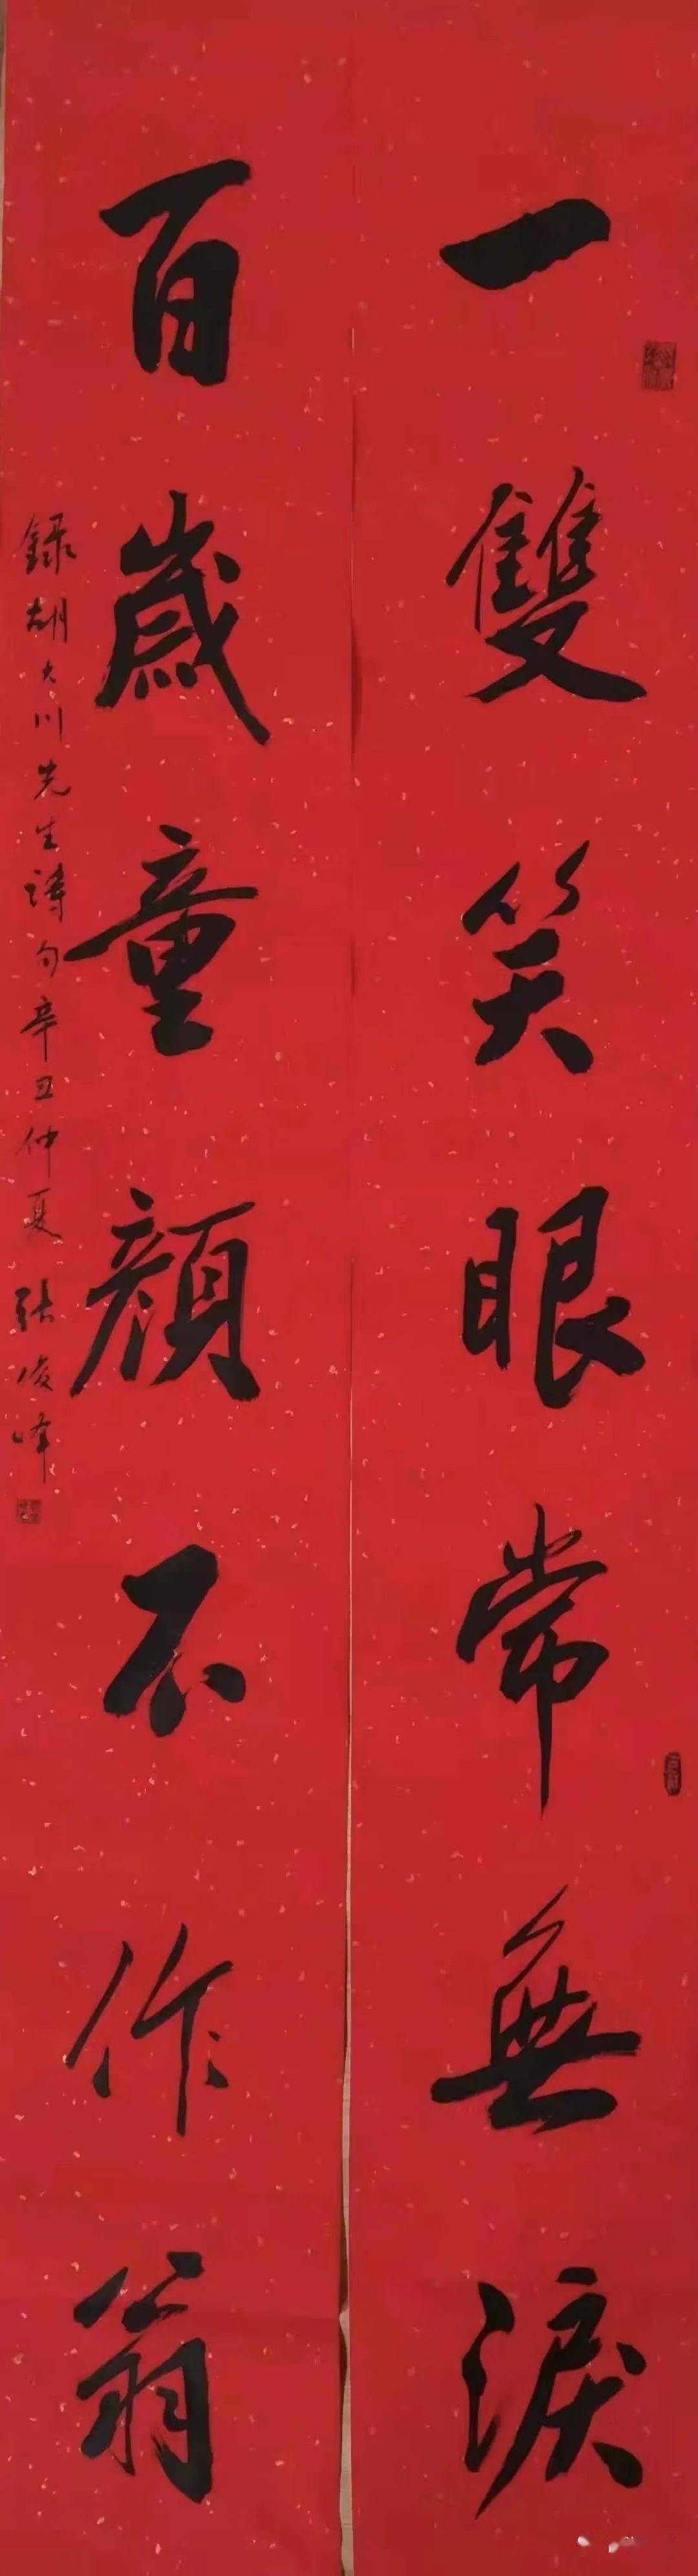 一雙笑眼常無淚
百歲童顔不作翁
録胡大川先生詩句辛丑仲夏張俊峰